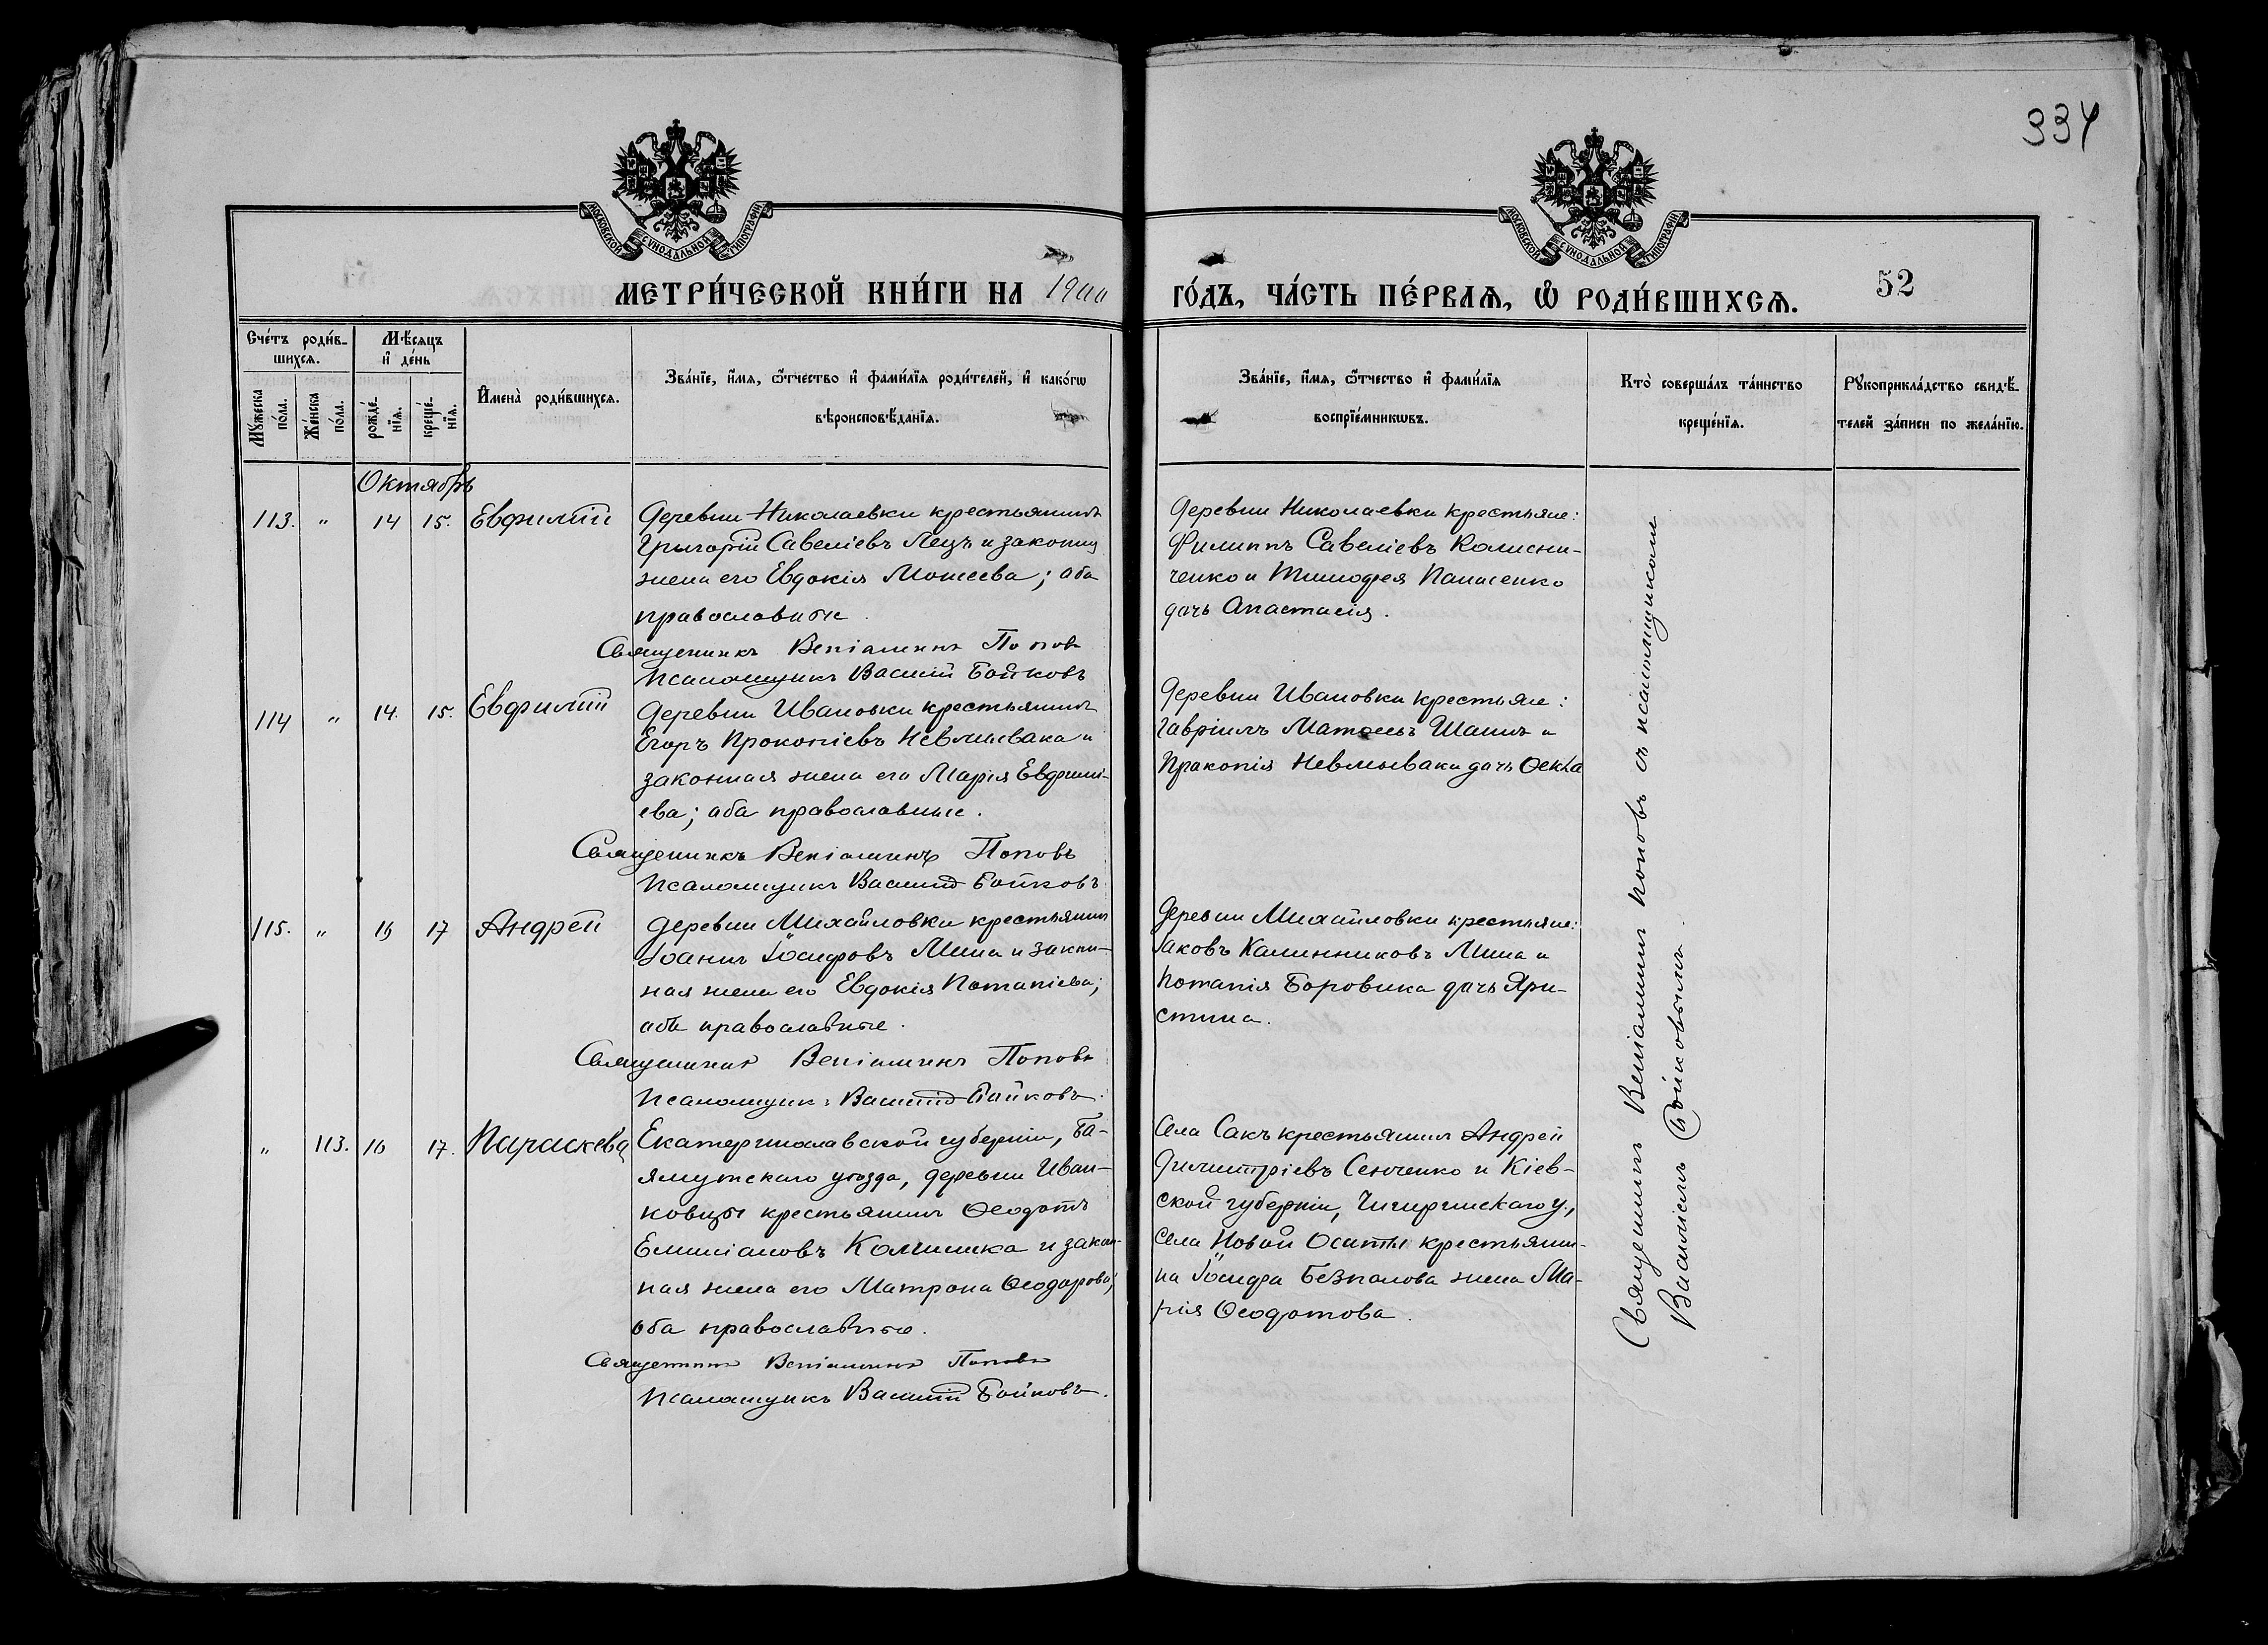 334
МОСКОВСКОЙ СѴНОДАЛЬНОЙ ТИПОГРАФІИ
МОСКОВСКОЙ СѴНОДАЛЬНОЙ ТИПОГРАФІИ
МЕТРИ́ЧЕСКОЙ КНИ́ГИ НА 1900
ГО́ДЪ, ЧА́СТЬ ПЕ́РВАѦ, Ѽ РОДИ́ВШИХСѦ.
52
Сче́тъ роди́в-
шихсѧ.
Мѣ́сѧцъ
и҆ де́нь
Мꙋ́жеска
по́ла.
Же́нска
по́ла.
рожде́-
нїѧ.
креще́-
нїѧ.
И҆мена̀ роди́вшихсѧ.
Зва́нїе, и҆́мѧ, ѻ҆́тчество и҆ фами́лїѧ роди́телей, и҆ како́гѡ
вѣроисповѣ́данїѧ.
Зва́нїе, и҆́мѧ, ѻ҆́тчество и҆ фами́лїѧ
воспрїе́мникѡвъ.
Кто̀ соверша́лъ та́инство
креще́нїѧ.
Рꙋкоприкла́дство свидѣ́-
телей за́писи по жела́нїю.
Октябрь
113. " 14 15. Евфимій
Деревни Николаевки крестьянинъ
Григорій Савеліевъ Лецъ и законн
жена его Евдокія Моисеева; оба
православные.
Священникъ Веніаминъ Поповъ
Псаломщикъ Василій Бойковъ
Деревни Николаевки крестьяне:
Филиппъ Савеліевъ Колисни-
ченко и Тимофея Панасенко
дочь Анастасія.
114 " 14. 15. Евфимій
Деревни Ивановки крестьянинъ
Егоръ Прокопіевъ Невмывака и
законная жена его Марія Евфимі-
ева; оба православные.
Священникъ Веніаминъ Поповъ
Псаломщикъ Василій Бойковъ
Деревни Ивановки крестьяне:
Гавріилъ Шанин и
Прокопія Невмываки дочь Ѳекла
115. " 16 17 Андрей
Деревни Михайловки крестьянинъ
Іоаннъ Іосифовъ Миша и закон-
ная жена его Евдокія Потапіева;
оба православные.
Священникъ Веніаминъ Поповъ
Псаломщикъ Василій Бойковъ.
Деревни Михайловки крестьяне:
Іаковъ Калинниковъ Миша и
Потапія Боровика дочь Хри-
стина.
" 113. 16 17. Параскева
Екатеринославской губерніи, Ба-
хмутскаго уѣзда, деревни Иван-
ковцы крестьянинъ Ѳеодотъ
Емиліановъ и закон-
ная жена его Матрона Ѳеодорова;
оба православные.
Священникъ Веніаминъ Поповъ
Псаломщикъ Василій Бойковъ.
Села Сакъ крестьянинъ Андрей
Димитріевъ Сенченко и Кіев-
ской губерніи, Чигиринскаго у.,
села Новой Осоты крестьяни-
на Іосифа Безпалова жена Ма-
рія Ѳеодотова.
Священникъ Веніаминъ Поповъ съ псаломщикомъ
Василіемъ Бойковымъ.